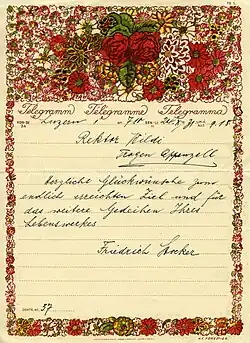 Telegramm Telegramme Telegramma
Luzern
Rektor Wildi
Trogen Appenzell
Herzliche Glückwünsche zum
endlich erreichten Ziel und für
das weitere Gedeihen Ihres
Lebenswerkes
Friedrich Hocker
37